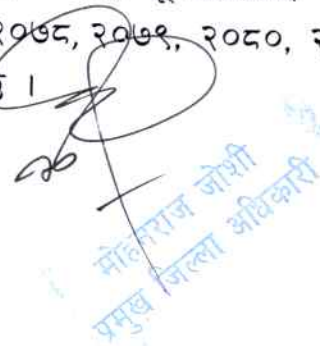 २०७८, २०७९, २०८०,
।
मोहनराज जोशी
प्रमुख जिल्ला अधिकारी